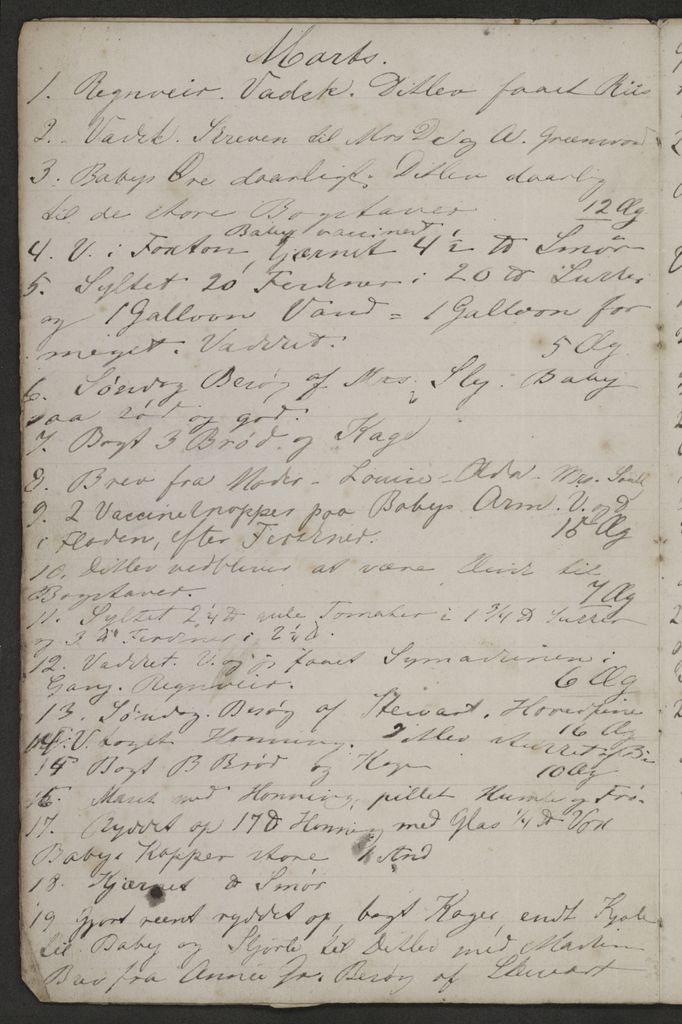 Marts.
1. Regnveir. Vadsk. Ditlev faaet Riis
2. Vadsk. Skreven til Mrs D og A. Greenwood
3. Babys Øre daarligt. Ditlev daarlig
til de store Bogstaver 12 Æg
Baby vaccinert
4. V. i Foxton, kjærnet 4½ ℔ Smør
5. Syltet 20 Ferskner i 20 ℔ Sukker
og 1 Galloon Vand = 1 Galloon for
meget. Vadsket. 5 Æg
6. Søndag Besøg af Mrs. Sly. Baby
saa sød og god.
7. Bagt 3 Brød og Kage
8. Brev fra Moder - Louise - Alda - Mrs.
9. 2 Vaccinekopper paa Babys Arm. V. og D
i Floden, efter Ferskner. 15 Æg
10. Ditlev vedbliver at være flink til
Bogstaver. 7 Æg
11. Syltet 2¼ ℔ gule Tomater i 1¾ ℔ Sukker
og 3 ℔ Ferskner i 2¼ ℔.
12. Vadsket. V. og jeg faaet Symaskinen i
Gang. Regnveir. 6 Æg
13. Søndag. Besøg af Stewart. Hovedpine
14. V. taget Honning. Ditlev stukket af Bi 16 Æg
15 Bagt 3 Brød og Kage 10 Æg
16. Maset med Honning, pillet Humle og Frø.
17. Ryddet op 17 ℔ Honning med Glas ¼ ℔ Vox
Babys Kopper store 1 And
18. Kjærnet ℔ Smør
19 Gjort reent ryddet op, bagt Kager, endt Kjole
til Baby og Skjorte til Ditlev med Maskin
Brev fra Annie Jr. Besøg af Stewart